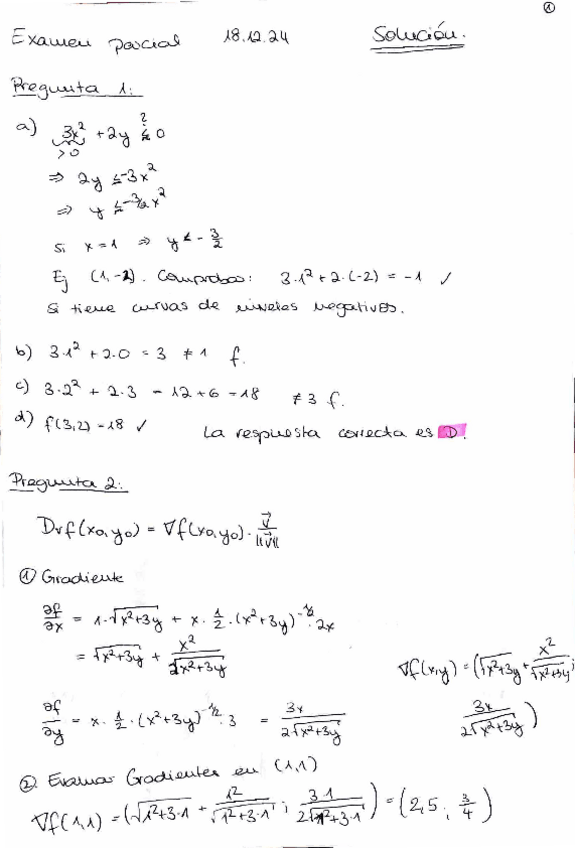 ①
Examen parcial 18.12.24 Solución.
Pregunta 1:
a) 3x² + 2y ≤? 0
>0
⇒ 2y ≤ -3x²
⇒ y ≤ -3/2 x²
Si x = 1 ⇒ y < - 3/2
Ej (1,-2). Comprobas: 3·1² + 2·(-2) = -1 ✓
Si tiene curvas de niveles negativos.
b) 3·1² + 2·0 = 3 ≠ 1 f.
c) 3·2² + 2·3 = 12 + 6 = 18 ≠ 3 f.
d) f(3,2) = 18 ✓ La respuesta correcta es D.
Pregunta 2:
Dvf(x0,y0) = ∇f(x0,y0) · v⃗/||v⃗||
① Gradiente
∂f/∂x = 1·√(x²+3y) + x · 1/2 · (x²+3y)^(-1/2) · 2x
= √(x²+3y) + x²/√(x²+3y) ∇f(x,y) = (√(x²+3y) + x²/√(x²+3y) ;
∂f/∂y = x · 1/2 · (x²+3y)^(-1/2) · 3 = 3x/(2√(x²+3y)) 3x/(2√(x²+3y)))
② Evaluar Gradientes en (1,1)
∇f(1,1) = (√(1²+3·1) + 1²/√(1²+3·1) ; 3·1/(2√(1²+3·1))) = (2,5 ; 3/4)